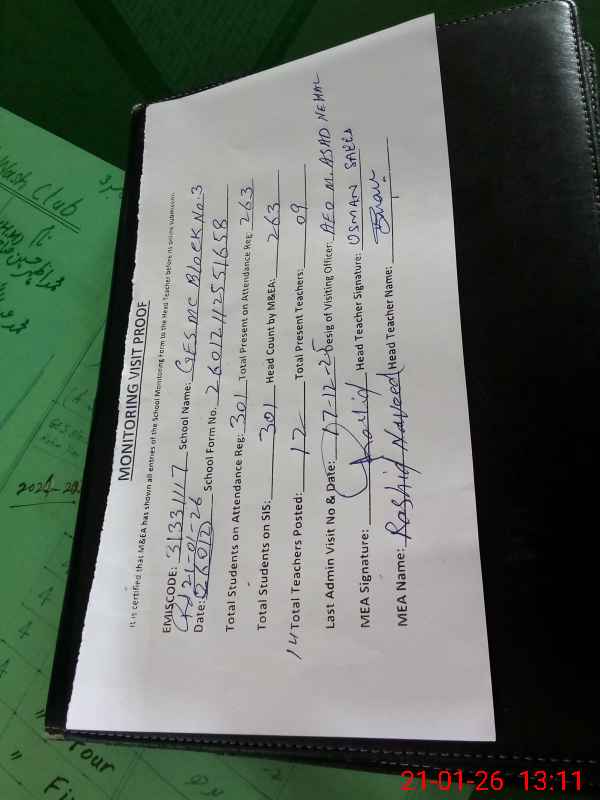 MONITORING VISIT PROOF
It is certified that M&EA has shown all entries of the School Monitoring Form to the Head Teacher before its online submission.
EMISCODE: 31331117 School Name: GES MC BLOCK No. 3
21-01-26
Date: 26012 School Form No. 260121125551658
Total Students on Attendance Reg: 301 Total Present on Attendance Reg: 263
Total Students on SIS: 301 Head Count by M&EA: 263
14 Total Teachers Posted: 12 Total Present Teachers: 09
Last Admin Visit No & Date: 17-12-25 Desig of Visiting Officer: AEO M. ASAD NEHAL
MEA Signature: Rashid Head Teacher Signature: USMAN SAEED
MEA Name: Rashid Naveed Head Teacher Name: Usman
Wash Club
Tour
21-01-26 13:11